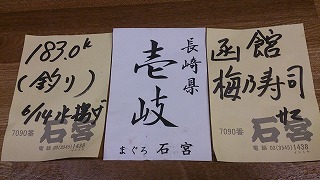 183.0k
(釣り)
6/14水揚げ
7090番
石宮
電話 03(3545)1438
長崎県
壱岐
まぐろ 石宮
函館
梅乃寿司
サエ
7090番
石宮
1438